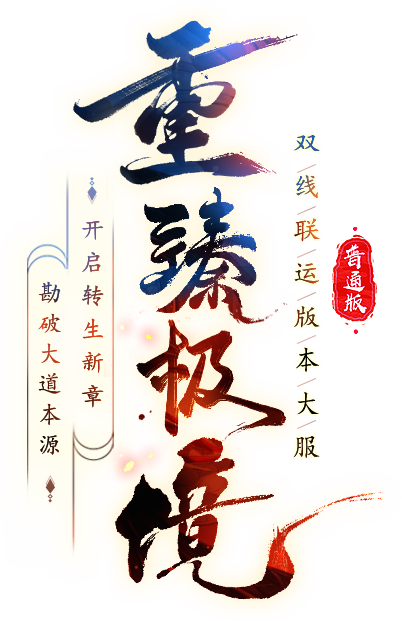 重臻极境
双线联运版本大服
普通版
开启转生新章
勘破大道本源